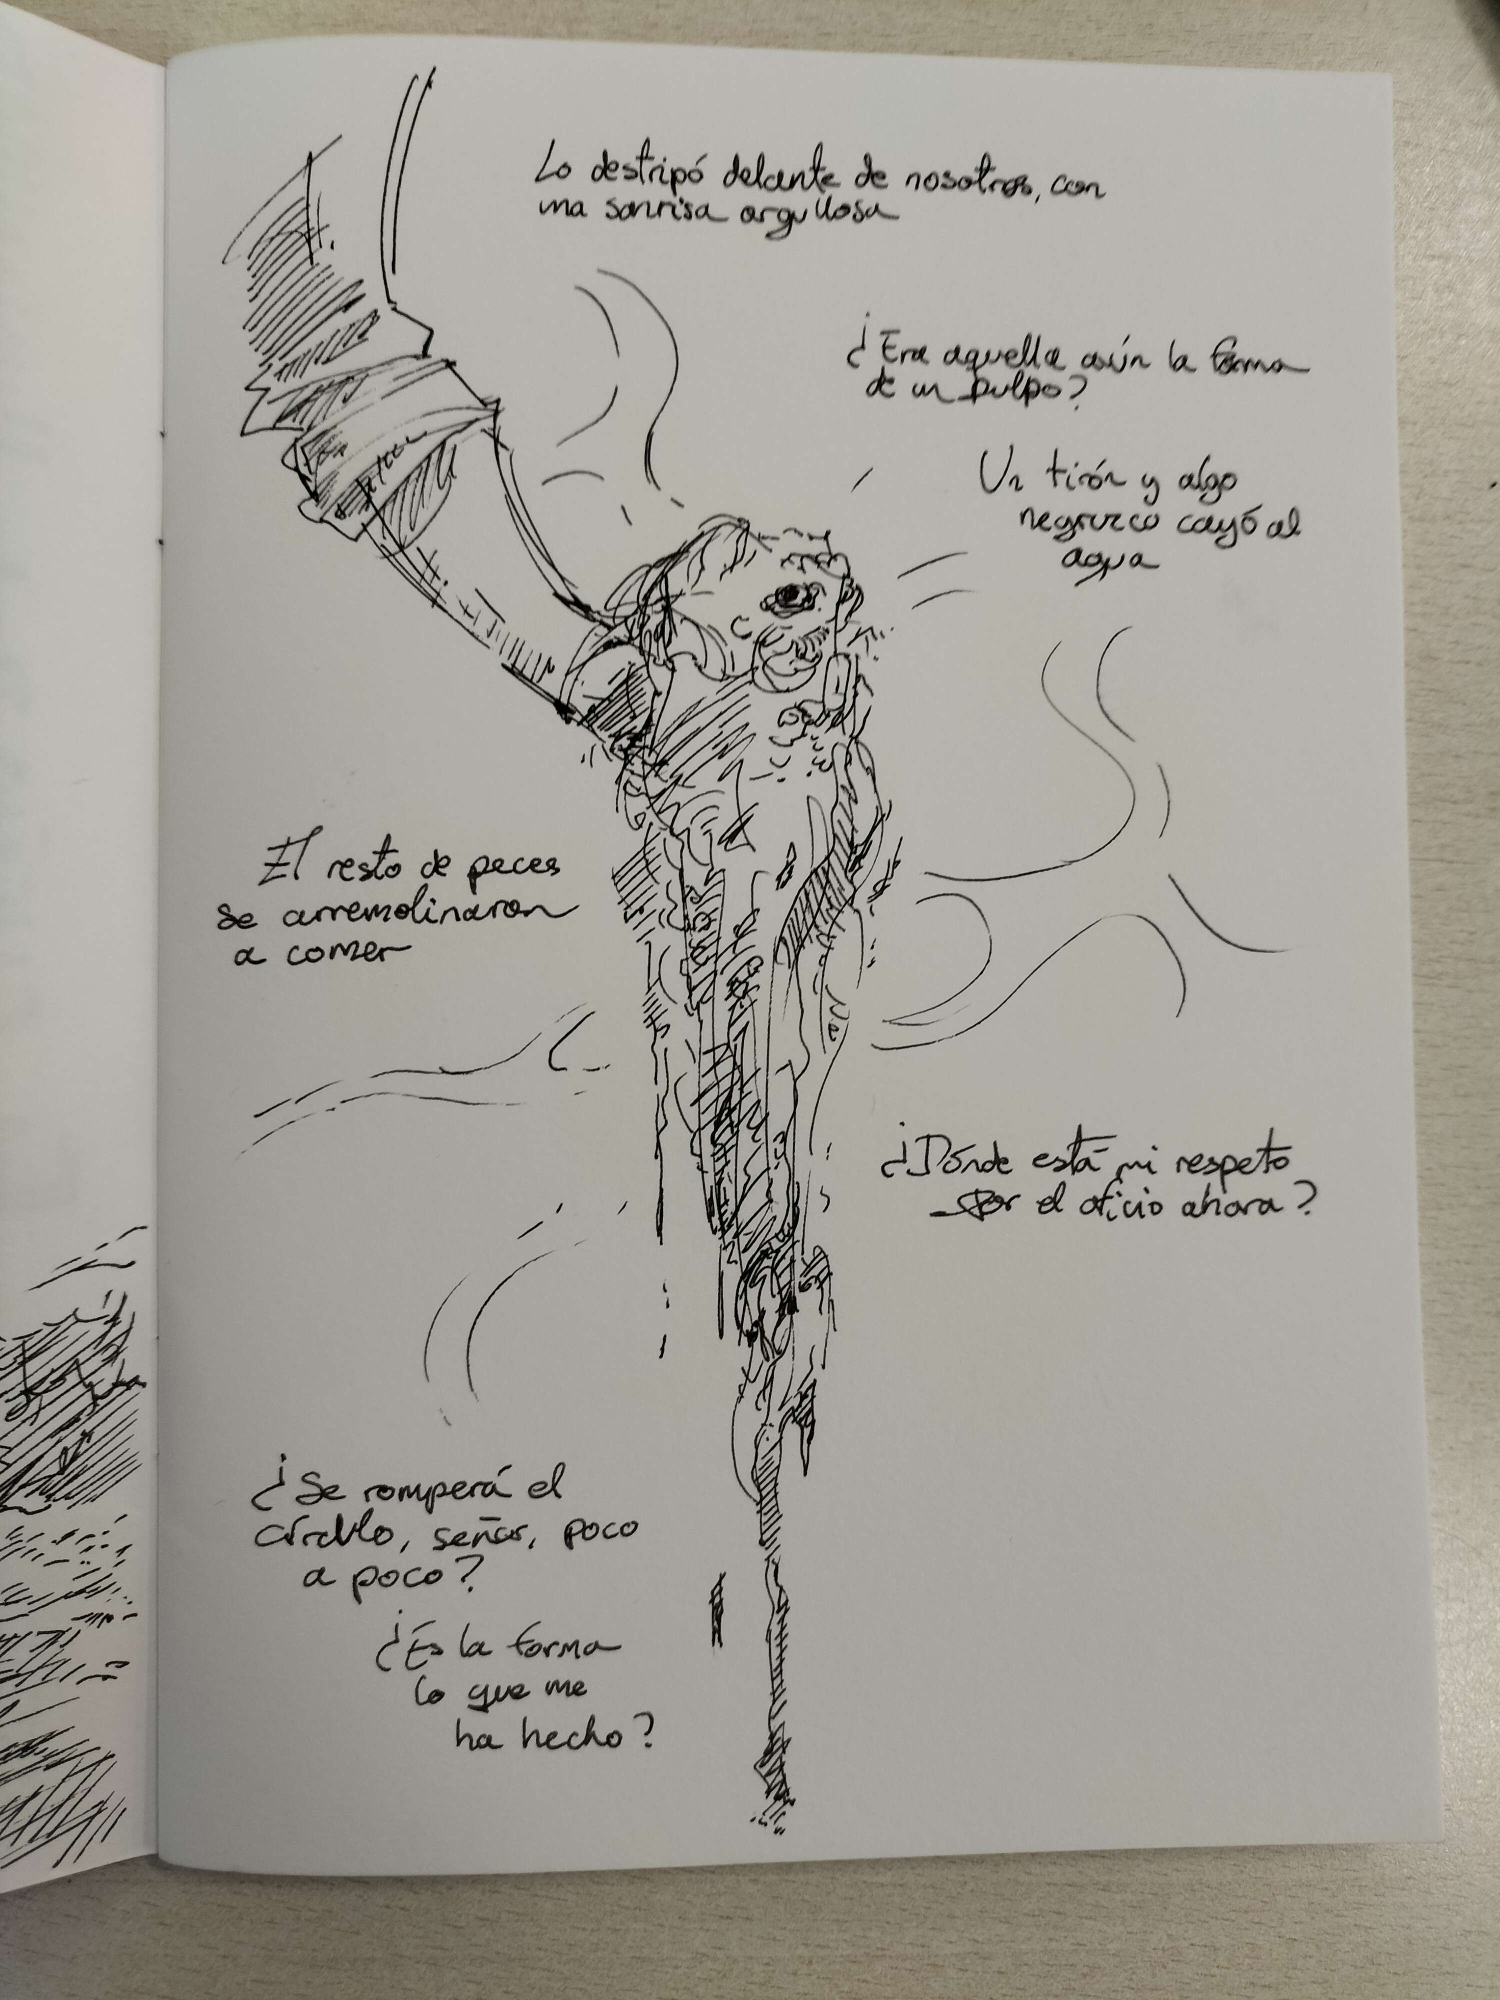 Lo destripó delante de nosotros, con
una sonrisa orgullosa
¿Era aquella aún la forma
de un pulpo?
Un tirón y algo
negruzco cayó al
agua
El resto de peces
se arremolinaron
a comer
¿Dónde está mi respeto
por el oficio ahora?
¿Se romperá el
círculo, señor, poco
a poco?
¿Es la forma
lo que me
ha hecho?